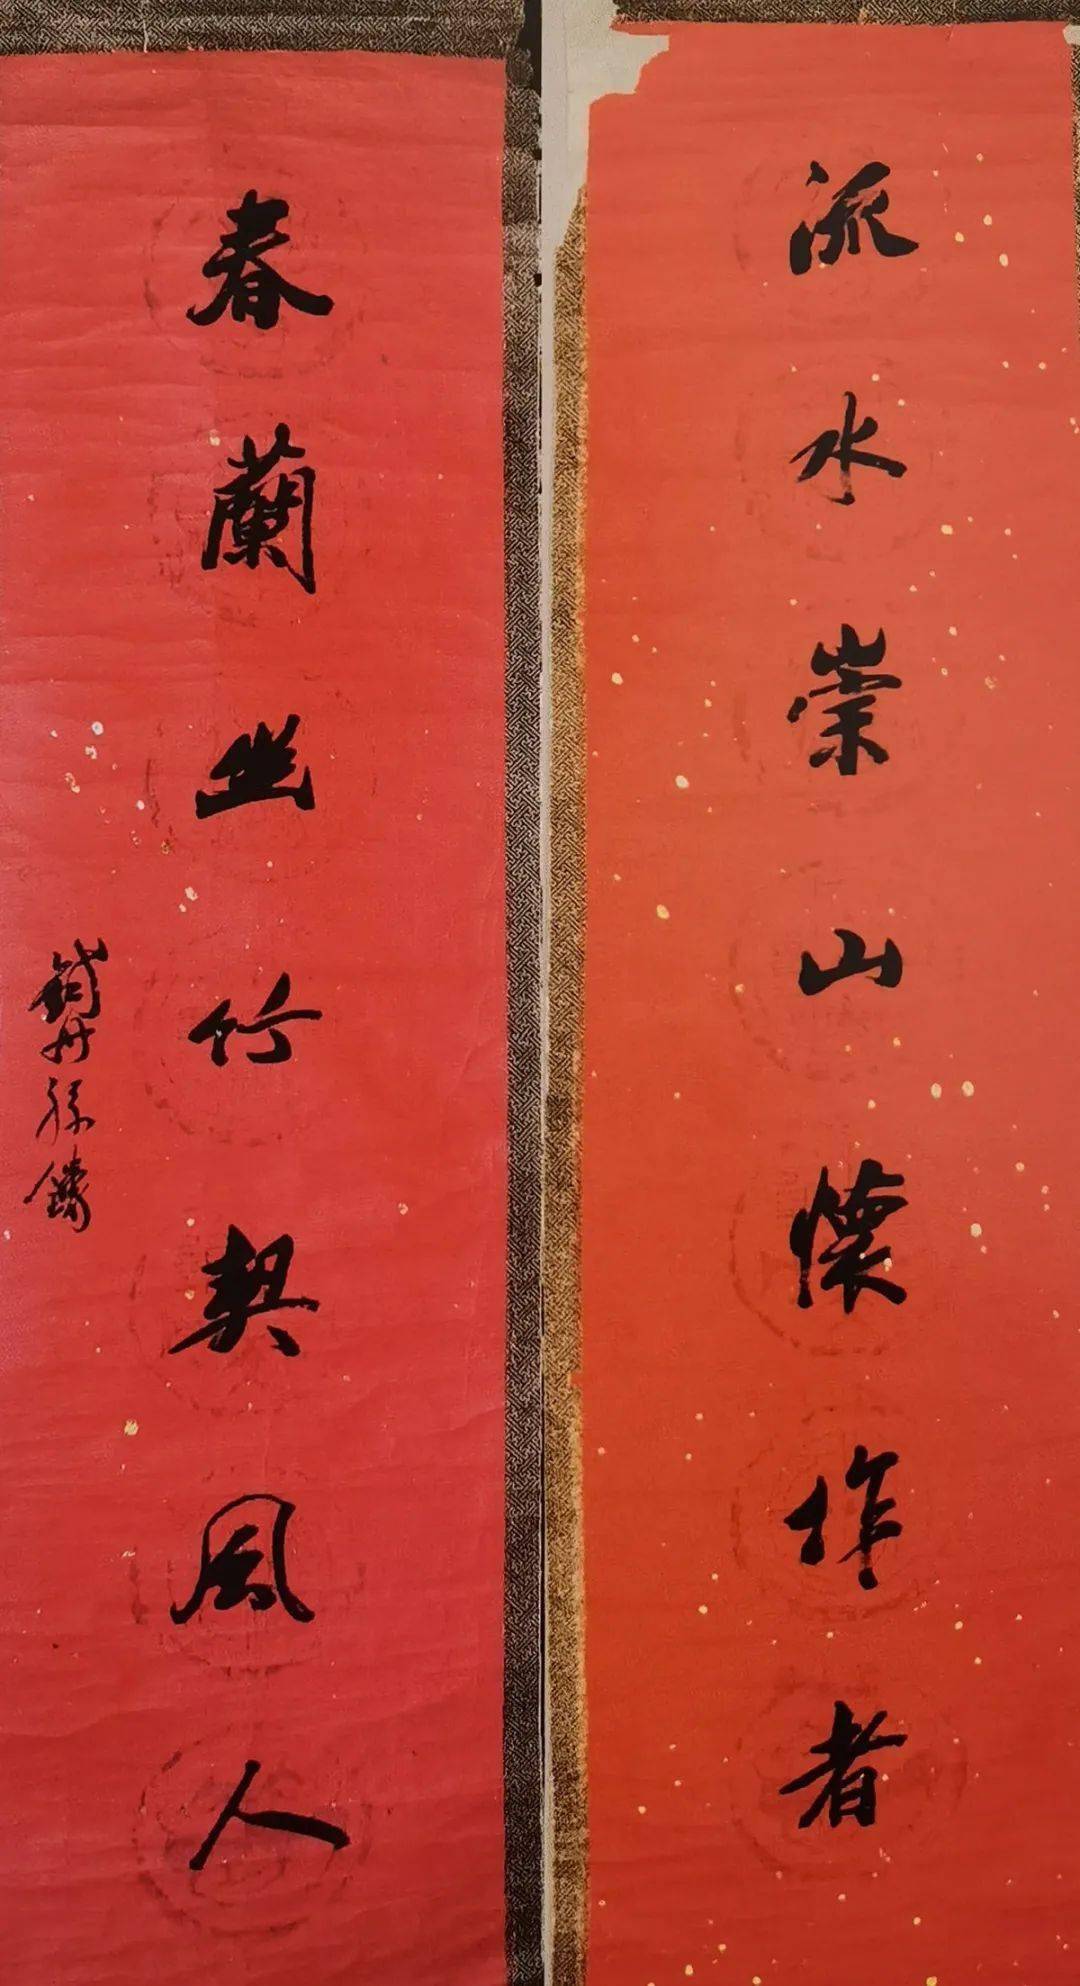 流水崇山懷作者
春蘭幽竹契風人
孫鏘